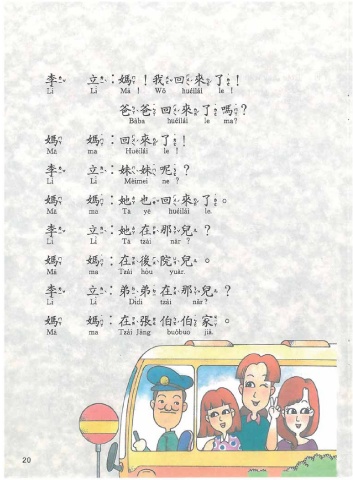 李 立：媽！我回來了！
Lǐ Lì Mā ! Wǒ huéilái le !
爸爸回來了嗎？
Bàba huéilái le ma?
媽 媽：回來了！
Mā ma Huéilái le !
李 立：妹妹呢？
Lǐ Lì Mèimei ne ?
媽 媽：她也回來了。
Mā ma Tā yě huéilái le.
李 立：她在那兒？
Lǐ Lì Tā tzài nǎr ?
媽 媽：在後院兒。
Mā ma Tzài hòu yuàr.
李 立：弟弟在那兒？
Lǐ Lì Dìdi tzài nǎr?
媽 媽：在張伯伯家。
Mā ma Tzài Jāng buóbuo jiā.
20